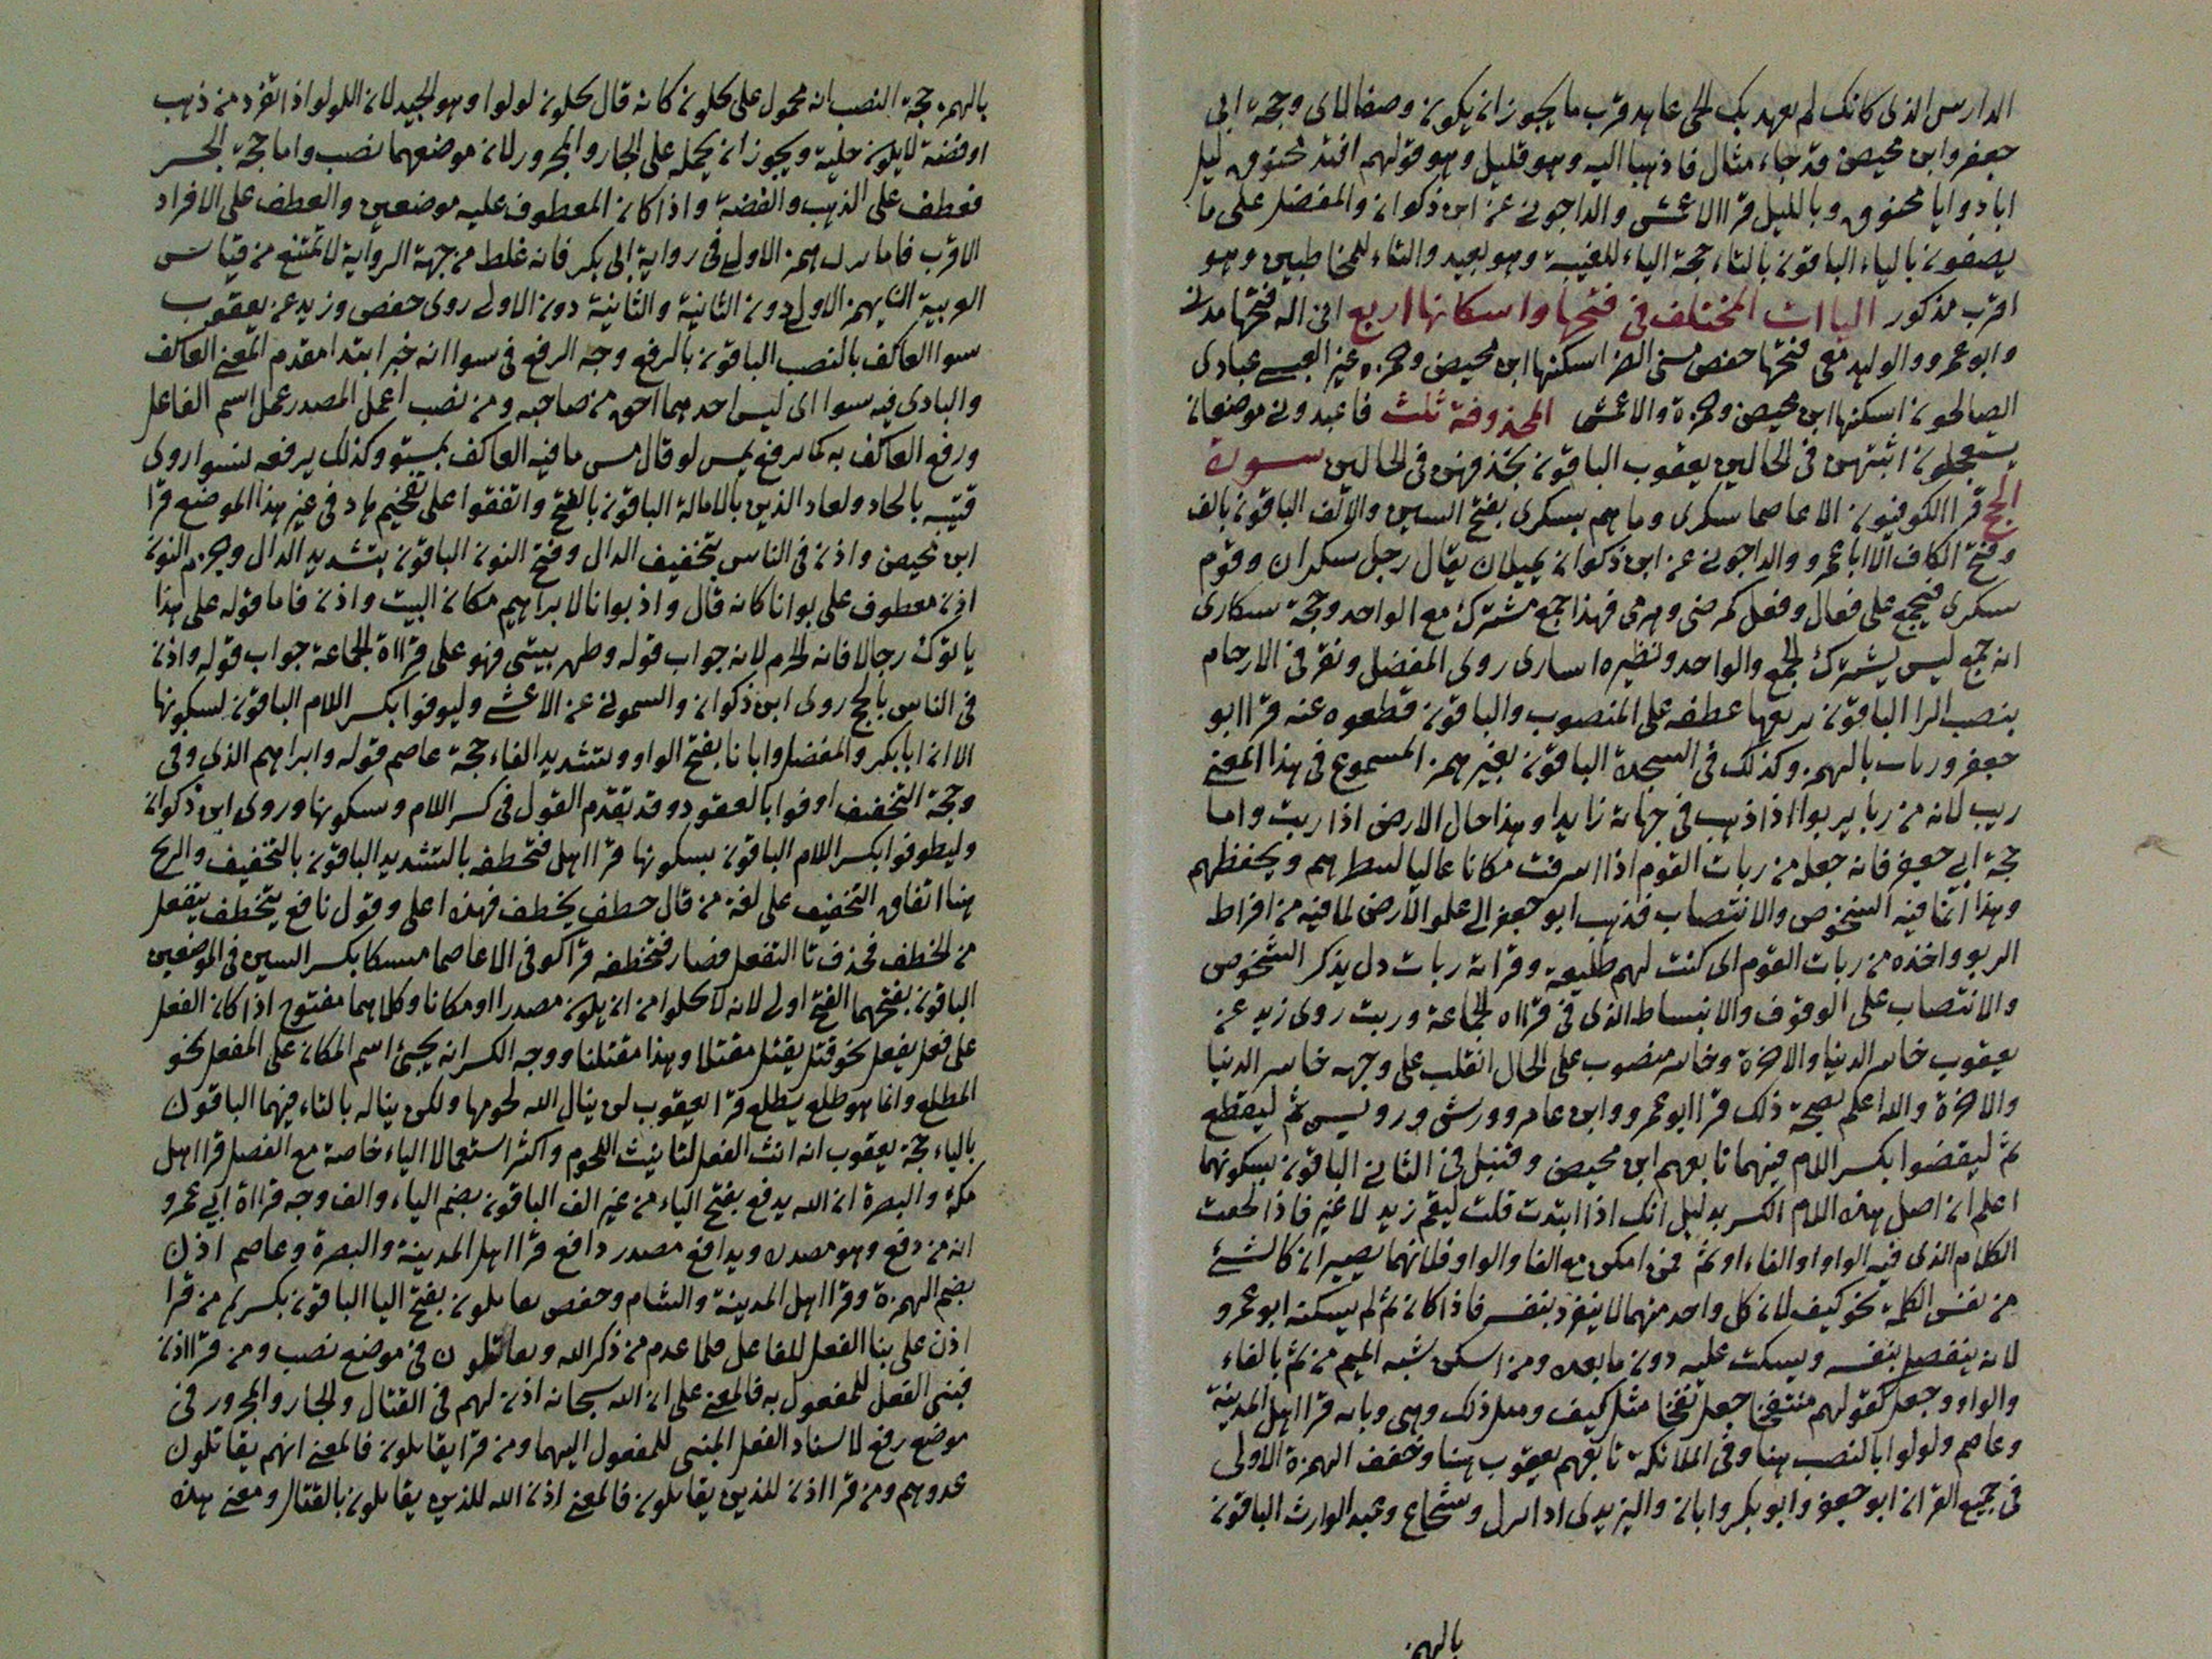 الدارس الذى كانك لم يعهد بك الحى عاهد قرب ما يجوز ان يكون وصفا لاى وحجة ابى
جعفر وابن محيصن قد جاء مثال فاذهبا اليه وهو قليل وهو قولهم افتد مخنوق ليل
اباد وايا مخنوق وبالليل قرا الاعمش والداجونى عن ابن ذكوان والمفضل على ما
يصفون بالياء الباقون بالتاء حجة الياء للغيبة وهو بعيد والتاء للمخاطبين وهو
اقرب مذكور الياات المختلف فى فتحها واسكانها اربع انى اله فتحها مدنى
وابو عمرو والوليد معى فتحها حفص مسنى الضر اسكنها ابن محيصن وحمزه عبادى
الصالحون اسكنها ابن محيصن وحمزة والاعمش المحذوفة ثلث فاعبدونى موضعان
يستعجلون اثبتهن فى الحالين يعقوب الباقون بحذفهن فى الحالين سورة
الحج قرا الكوفيون الا عاصما سكرى وما هم بسكرى بفتح السين والالف الباقون بالف
وفتح الكاف الا ابا عمرو والداجونى عن ابن ذكوان يميلان يقال رجل سكران وقوم
سكرى فيجمع على فعال وفعل كمرضى وهرمى فهذا جمع مشترك مع الواحد وحجة سكارى
انه جمع ليس يشترك الجمع والواحد ونظيره اسارى روى المفضل ونقر فى الارحام
بنصب الرا الباقون برفعها عطفه على المنصوب والباقون قطعوه عنه قرا ابو
جعفر وربات بالهمز وكذلك فى السجدة الباقون بغير همز المسموع فى هذا المعنى
ربت لانه من ربا يربوا اذا ذهب فى جهاته زايدا وهذا حال الارض اذا ربت واما
حجة ابى جعفر فانه جعل من ربات القوم اذا اشرفت مكانا عاليا لتنظرهم ويحفظهم
وهذا انما فيه الشخوص والانتصاب فذهب ابو جعفر الى علو الارض لما فيه من افراط
الربو واخذه من ربات القوم اى كنت لهم طليعة وقراته ربات دل يذكر الشخوص
والانتصاب على الوقوف والانبساط الذى فى قرااه الجماعة وربت روى زيد عن
يعقوب خاسر الدنيا والاخرة وخاسر منصوب على الحال انقلب على وجهه خاسر الدنيا
والاخرة والله اعلم بصحة ذلك قرا ابو عمرو وابن عامر وورش ورويس ثم ليقطع
ثم ليقضوا بكسر اللام فيهما تابعهم ابن محيصن وقنبل فى الثانى الباقون بسكونهما
اعلم ان اصل هذه اللام الكسر بدليل انك اذا ابتدت قلت ليقم زيد لا غير فاذا لحقت
الكلام الذى فيه الواو او الفاء او ثم فمن اسكن مع الفا والواو فلانهما يصيران كالشئ
من نفس الكلمة نحو كيف لان كل واحد منهما لا ينفرد بنفسه فاذا كان ثم لم يسكنه ابو عمرو
لانه ينفصل بنفسه ويسكت عليه دون ما بعده ومن اسكن شبه الميم من ثم بالفاء
والواو وجعل كقولهم منتفخا جعل تفخا مثل كيف ومثل ذلك وهى وبابه قرا اهل المدينة
وعاصم ولولوا بالنصب هنا وفى الملائكة تابعهم يعقوب هنا وخفف الهمزة الاولى
فى جميع القران ابو جعفر وابو بكر وابان واليزيدى اذا ادرل وشجاع وعبد الوارث الباقون
بالهمز
بالهمز حجة النصب انه محمول على يحلون كانه قال يحلون لولوا وهو الجيد لان اللولو اذا انفرد من ذهب
او فضة لا يكون حلية ويجوز ان يحمله على الجار والمجرور لان موضعهما نصب واما حجة الجر
فعطف على الذهب والفضة واذا كان المعطوف عليه موضعين والعطف على الافراد
الاقرب فاما ترك همز الاولى فى رواية ابى بكر فانه غلط من جهة الرواية لا تمتنع من قياس
العربية ان يهمز الاولى دون الثانية والثانية دون الاولى روى حفص وزيد عن يعقوب
سوا العاكف بالنصب الباقون بالرفع وجه الرفع فى سوا انه خبر ابتدا مقدم المعنى العاكف
والبادى فيه سوا اى ليس احدهما احق من صاحبه ومن نصب اعمل المصدر عمل اسم الفاعل
ورفع العاكف به كما يرفع بمستو لو قال مستويا فيه العاكف بمستو وكذلك يرفعه بسوا روى
قتيبه بالحاد ولعاد الذين بالامالة الباقون بالفتح واتفقوا على تفخيم هاد فى غير هذا الموضع قرا
ابن محيصن واذن فى الناس بتخفيف الدال وفتح النون الباقون بتشديد الدال وجزم النون
اذن معطوف على بوانا كانه قال واذ بوانا لابراهيم مكان البيت واذن فاما قوله على هذا
ياتوك رجالا فانه انجزم لانه جواب قوله وطهر بيتى فهو على قرااة الجماعة جواب قوله واذن
فى الناس بالحج روى ابن ذكوان والسمونى عن الاعشى وليوفوا بكسر اللام الباقون بسكونها
الا ان ابا بكر والمفضل وابانا بفتح الواو وتشديد الفاء حجة عاصم قوله وابراهيم الذى وفى
وحجة التخفيف اوفوا بالعقود وقد تقدم القول فى كسر اللام وسكونها وروى ابن ذكوان
وليطوفوا بكسر اللام الباقون بسكونها قرا اهل فتخطفه بالتشديد الباقون بالتخفيف والريح
هنا اتفاق التخفيف على لغة من قال خطف يخطف فهذه اعلى وقول نافع يتخطف يتفعل
من الخطف فحذف تا التفعل فصار فتخطفه قرا كوفى الا عاصما منسكا بكسر السين فى الموضعين
الباقون بفتحهما الفتح اولى لانه لا يخلوا من ان يكون مصدرا او مكانا وكلاهما مفتوح اذا كان الفعل
على فعل يفعل نحو قتل يقتل مقتلا وهذا مقتلنا ووجه الكسر انه يجئ اسم المكان على المفعل نحو
المطلع وانما هو طلع يطلع قرا يعقوب لن ينال الله لحومها ولكن يناله بالتاء فيهما الباقون
بالياء حجة يعقوب انه انث الفعل لتانيث اللحوم واكثر استعمالا الياء خاصة مع الفصل قرا اهل
مكة والبصرة ان الله يدفع بفتح الياء من غير الف الباقون بضم الياء والف وجه قرااة ابى عمرو
انه من دفع وهو مصدره ويدافع مصدر دافع قرا اهل المدينة والبصرة وعاصم اذن
بضم الهمزة وقرا اهل المدينة والشام وحفص يقاتلون بفتح التا الباقون بكسرهم من قرا
اذن على بنا الفعل للفاعل فلما تقدم من ذكر الله ويقاتلون فى موضع نصب ومن قرا اذن
فبنى الفعل للمفعول به فالمعنى على ان الله سبحانه اذن لهم فى القتال والجار والمجرور فى
موضع رفع لاسناد الفعل المبنى للمفعول اليهما ومن قرا يقاتلون فالمعنى انهم يقاتلون
عدوهم ومن قرا اذن للذين يقاتلون فالمعنى اذن الله للذين يقاتلون بالقتال ومعنى هذه